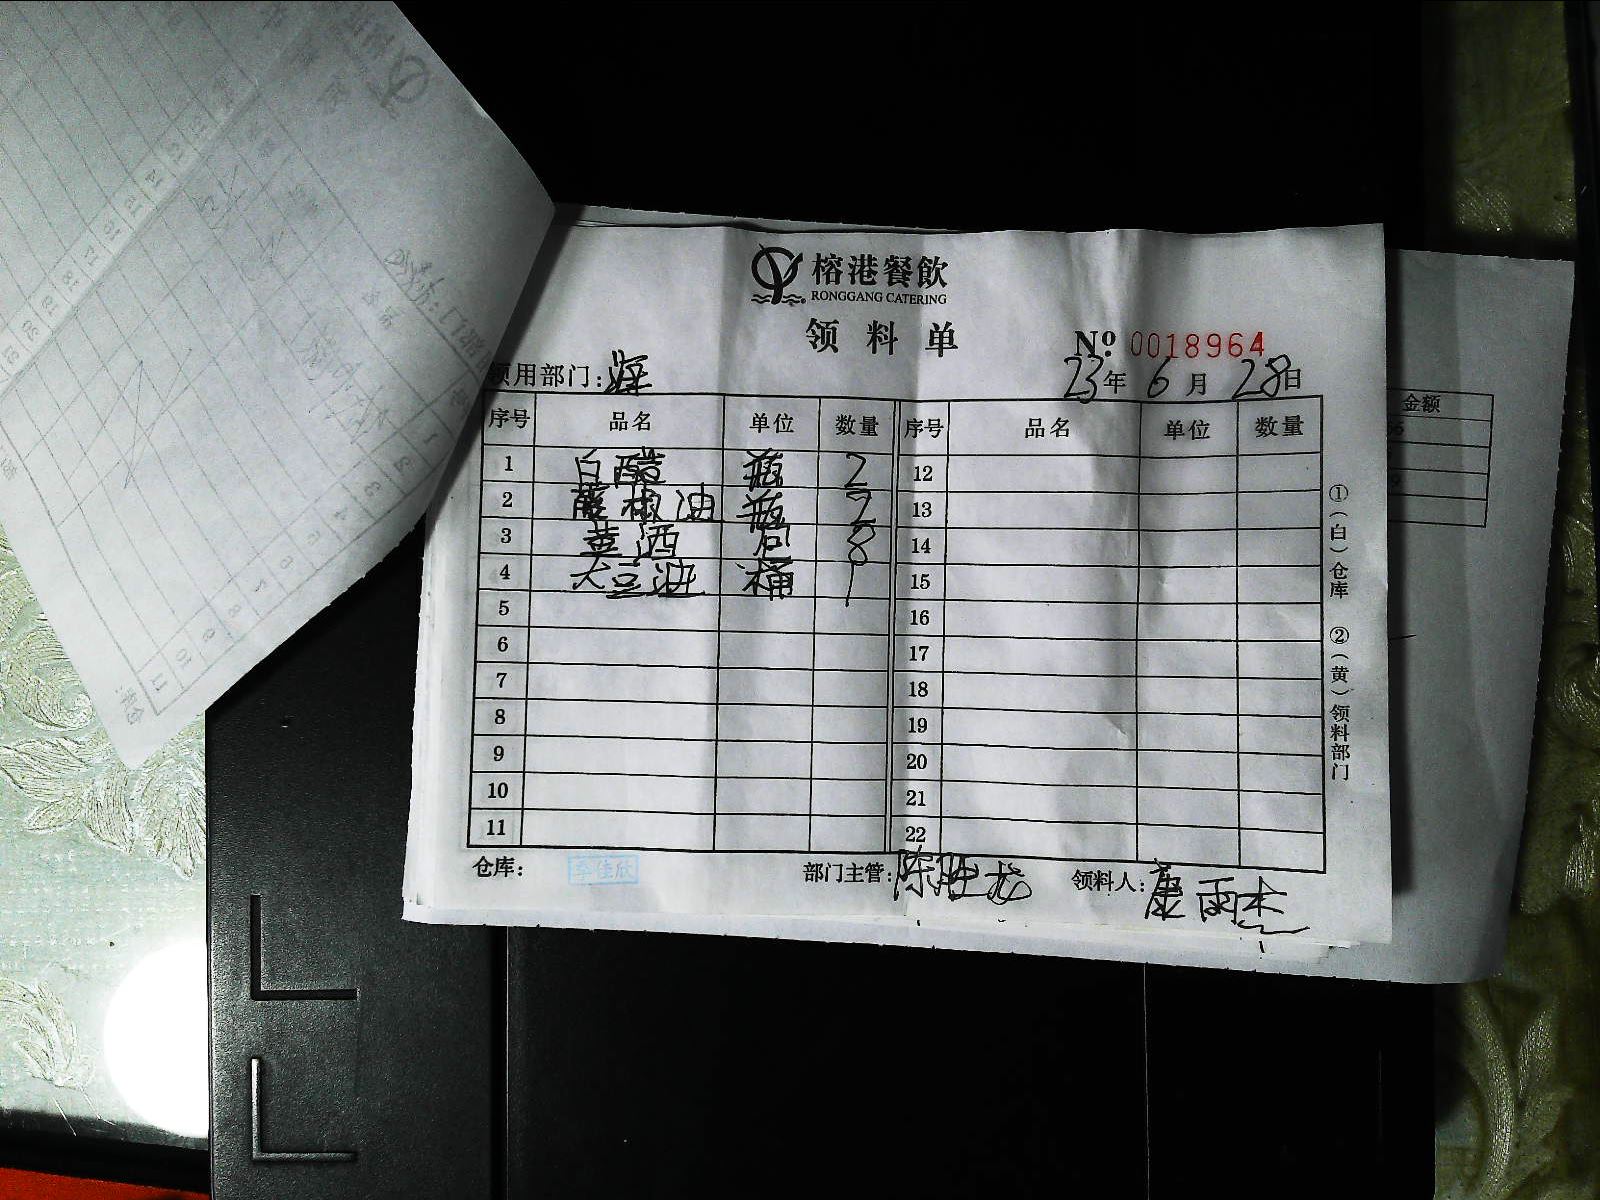 榕港餐飲
RONGGANG CATERING
领料单
№ 0018964
领用部门:
23年 6月 28日
序号 品名 单位 数量 序号 品名 单位 数量
1 白醋 瓶 2 12
2 藤椒油 瓶 2 13
3 黄酒 8 14
4 大豆油 桶 1 15
5 16
6 17
7 18
8 19
9 20
10 21
11 22
仓库: 李佳欣 部门主管:陈胜龙 领料人:康雨杰
①(白)仓库 ②(黄)领料部门
金额